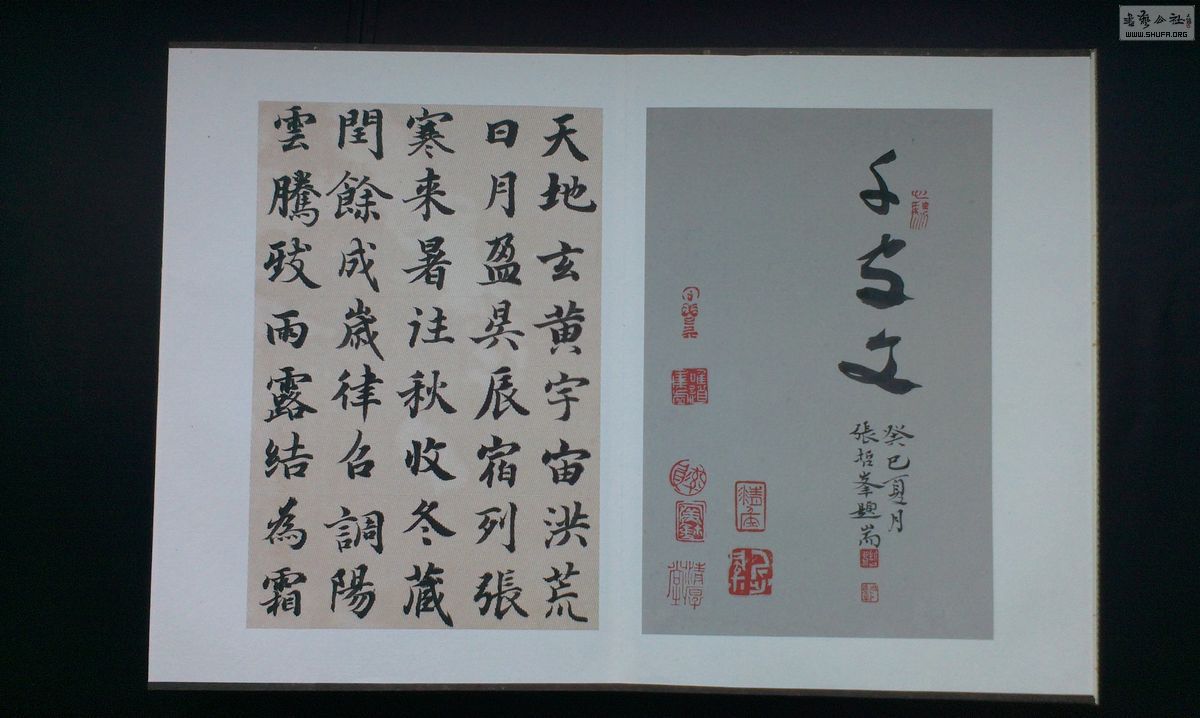 千字文
癸巳夏月
張哲峯題耑
唯道集虛
天地玄黄宇宙洪荒
日月盈昃辰宿列張
寒来暑往秋收冬藏
閏餘成歲律召調陽
雲騰致雨露結為霜
書藝公社
WWW.SHUFA.ORG